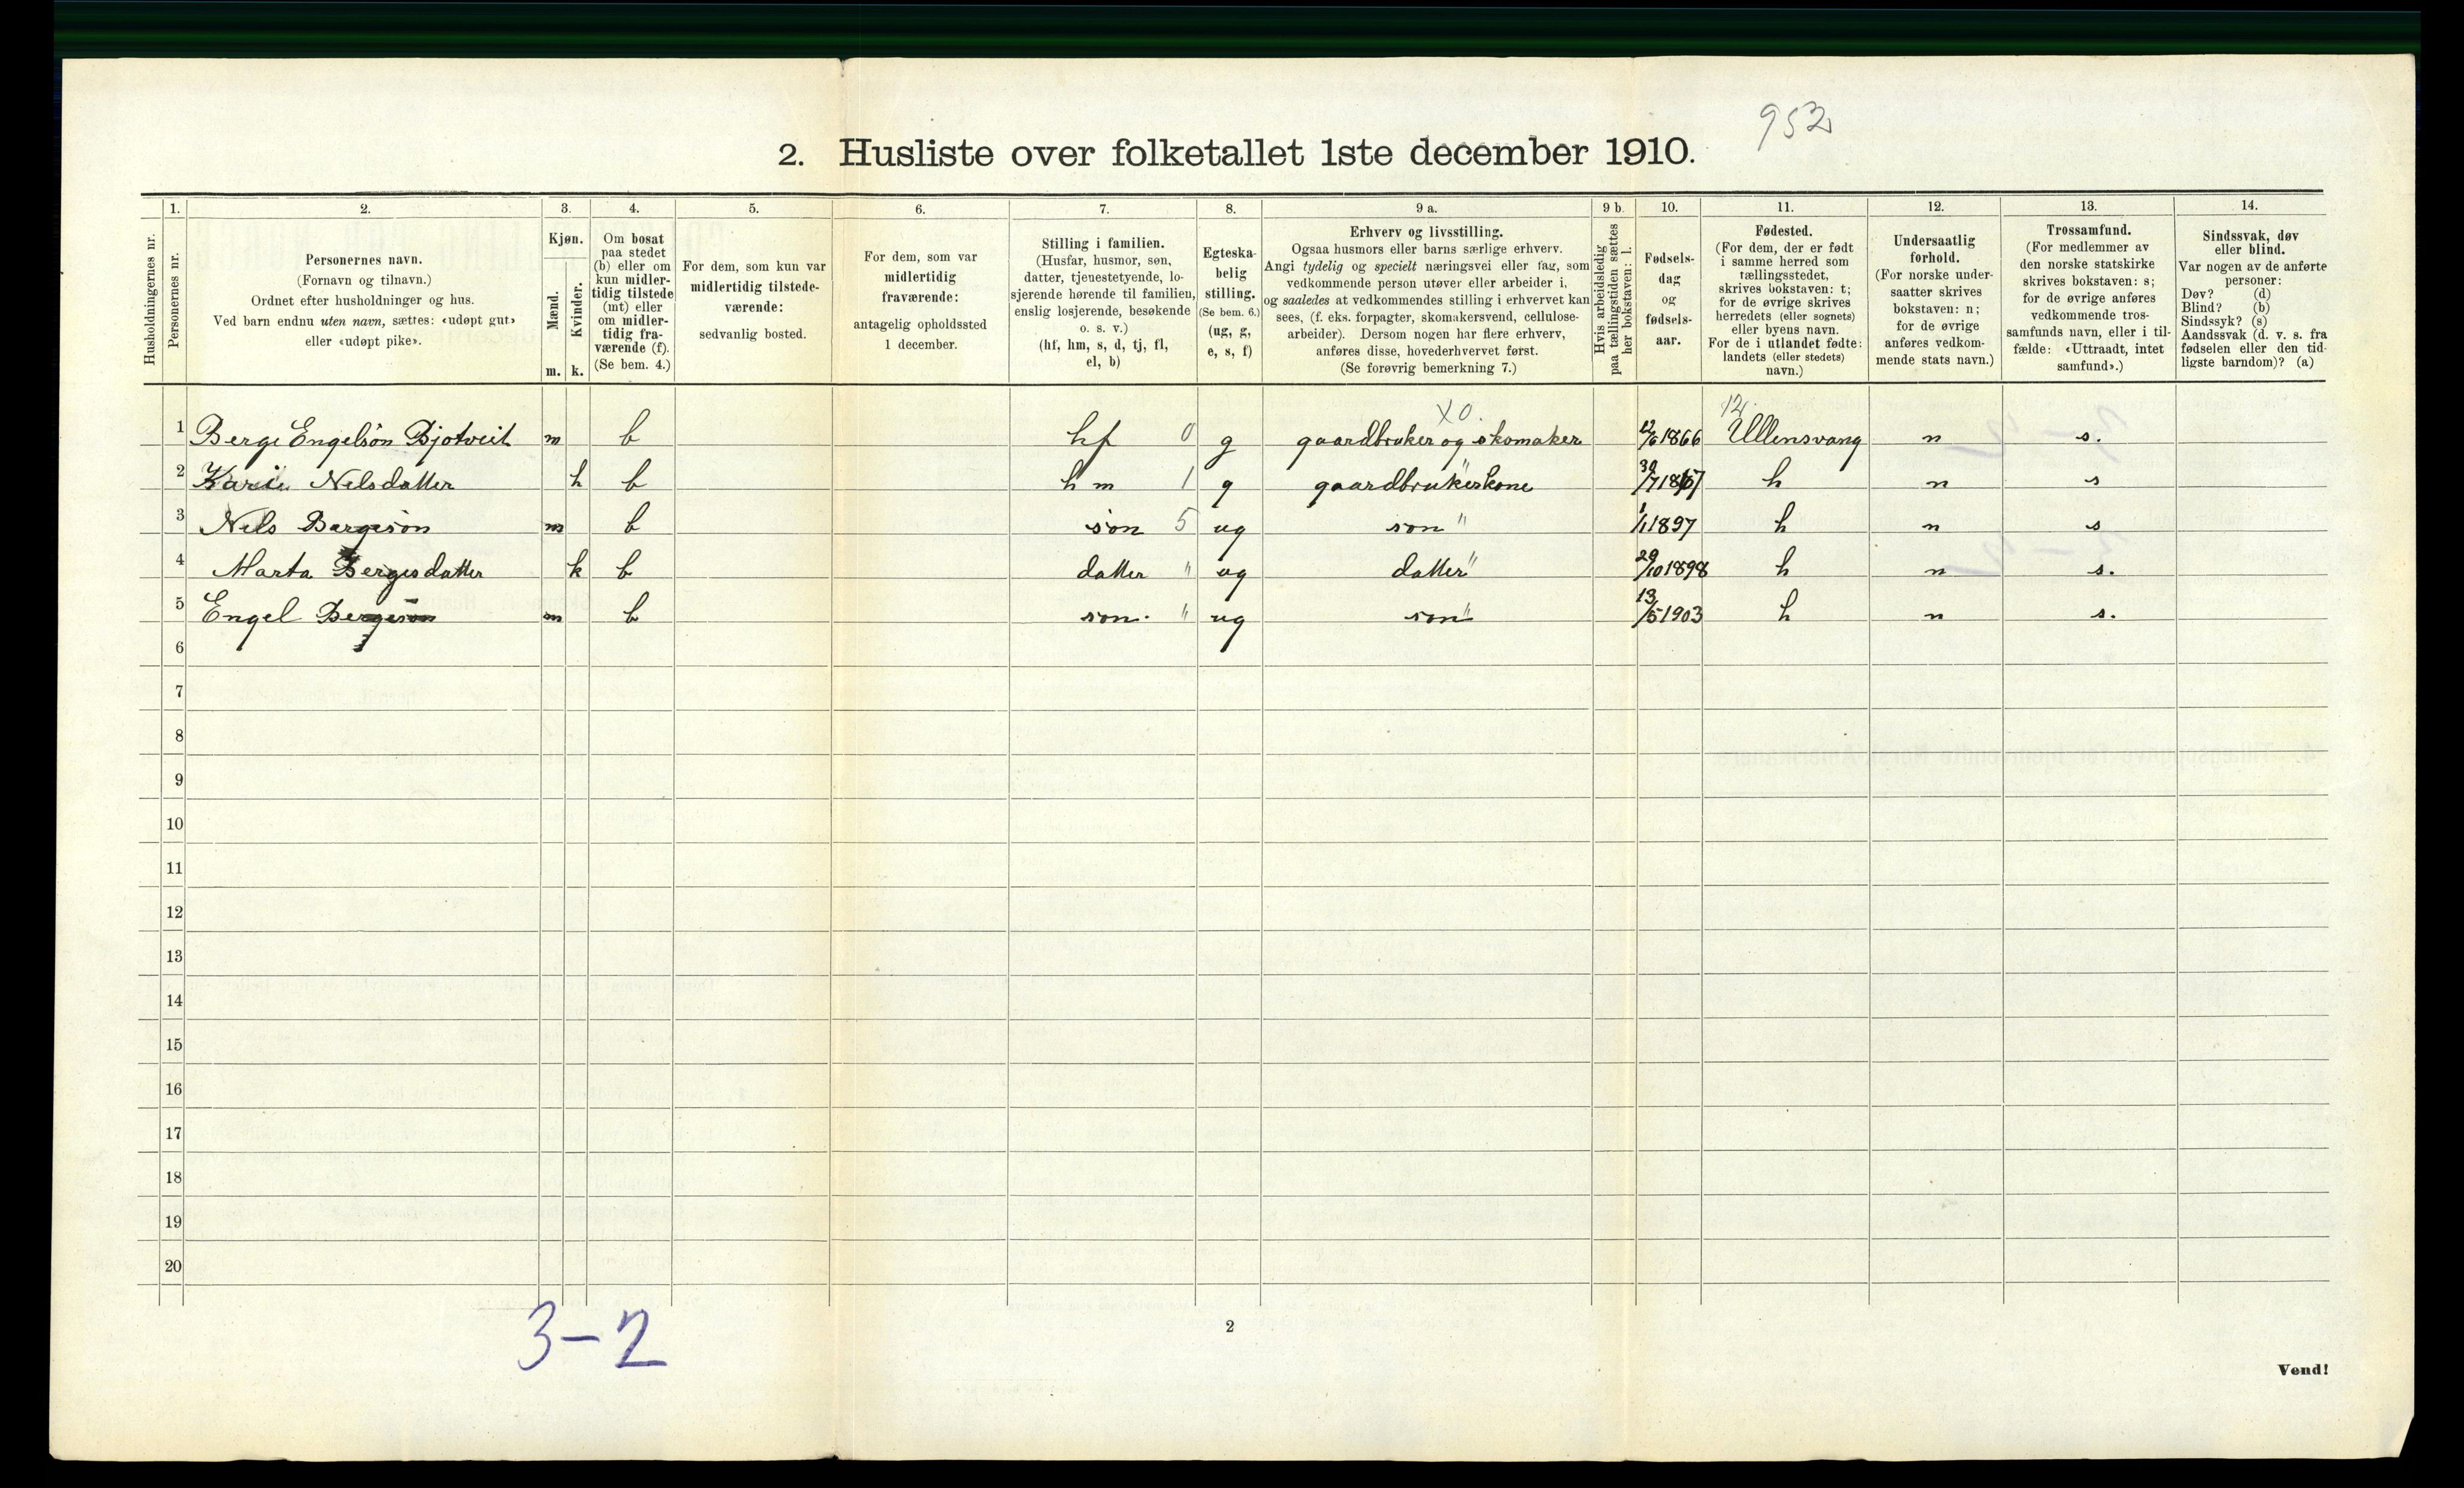 952
2. Husliste over folketallet 1ste december 1910.
Husholdningernes nr.
1.
Personernes nr.
2.
Personernes navn.
(Fornavn og tilnavn.)
Ordnet efter husholdninger og hus.
Ved barn endnu uten navn, sættes: «udøpt gut»
eller «udøpt pike».
3.
Kjøn.
Mænd.
Kvinder.
m. k.
4.
Om bosat
paa stedet
(b) eller om
kun midler-
tidig tilstede
(mt) eller
om midler-
tidig fra-
værende (f).
(Se bem. 4.)
5.
For dem, som kun var
midlertidig tilstede-
værende:
sedvanlig bosted.
6.
For dem, som var
midlertidig
fraværende:
antagelig opholdssted
1 december.
7.
Stilling i familien.
(Husfar, husmor, søn,
datter, tjenestetyende, lo-
sjerende hørende til familien,
enslig losjerende, besøkende
o. s. v.)
(hf, hm, s, d, tj, fl,
el, b)
8.
Egteska-
belig
stilling.
(Se bem. 6.)
(ug, g,
e, s, f)
9 a.
Erhverv og livsstilling.
Ogsaa husmors eller barns særlige erhverv.
Angi tydelig og specielt næringsvei eller fag, som
vedkommende person utøver eller arbeider i,
og saaledes at vedkommendes stilling i erhvervet kan
sees, (f. eks. forpagter, skomakersvend, cellulose-
arbeider). Dersom nogen har flere erhverv,
anføres disse, hovederhvervet først.
(Se forøvrig bemerkning 7.)
9 b.
Hvis arbeidsledig
paa tællingstiden sættes
her bokstaven: l.
10.
Fødsels-
dag
og
fødsels-
aar.
11.
Fødested.
(For dem, der er født
i samme herred som
tællingsstedet,
skrives bokstaven: t;
for de øvrige skrives
herredets (eller sognets)
eller byens navn.
For de i utlandet fødte:
landets (eller stedets)
navn.)
12.
Undersaatlig
forhold.
(For norske under-
saatter skrives
bokstaven: n;
for de øvrige
anføres vedkom-
mende stats navn.)
13.
Trossamfund.
(For medlemmer av
den norske statskirke
skrives bokstaven: s;
for de øvrige anføres
vedkommende tros-
samfunds navn, eller i til-
fælde: «Uttraadt, intet
samfund».)
14.
Sindssvak, døv
eller blind.
Var nogen av de anførte
personer:
Døv? (d)
Blind? (b)
Sindssyk? (s)
Aandssvak (d. v. s. fra
fødselen eller den tid-
ligste barndom)? (a)
X0. 12.
1 Berge Engelsøn Bjotveit m b hf 0 g gaardbruker og skomaker 12/6 1866 Ullensvang n s.
2 Nelsdatter k b hm 1 g gaardbrukerkone " 30/7 h n s
3 Nels Bergesøn m b søn 5 ug søn " 1/1 1897 h n s
4 Marta Bergesdatter k b datter " ug datter " 29/10 1898 h n s.
5 Engel Bergesøn m b søn. " ug søn " 13/5 1903 h n s.
6
7
8
9
10
11
12
13
14
15
16
17
18
19
20
3-2
2
Vend!